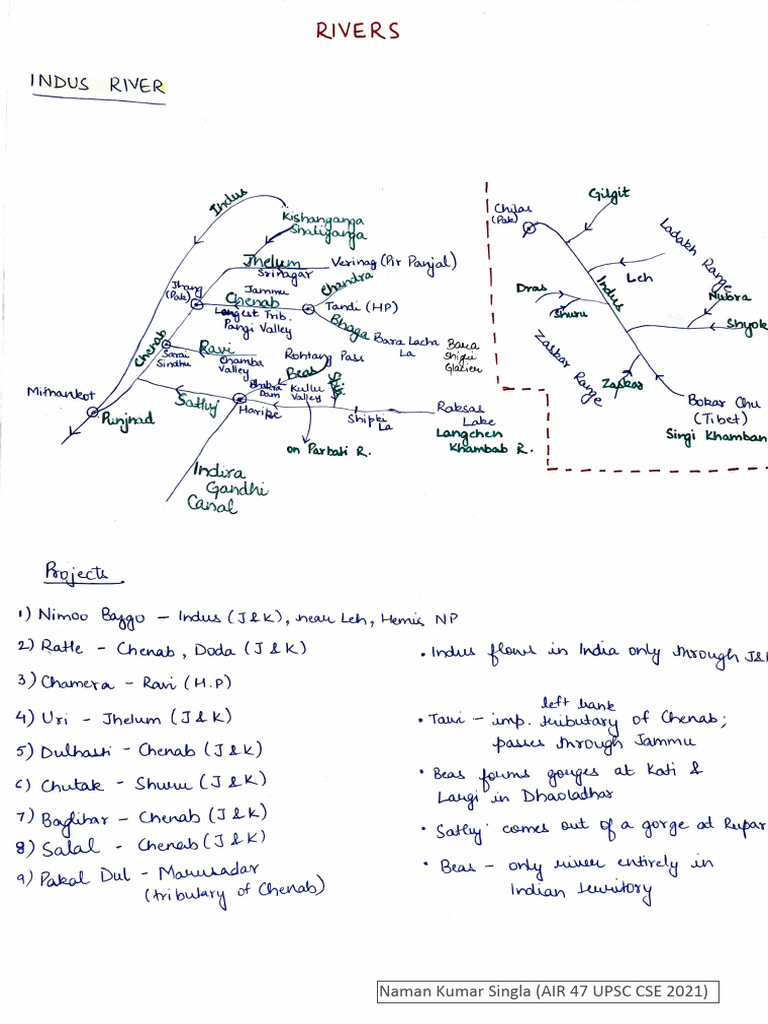 RIVERS
INDUS RIVER
Indus
Kishanganga
Shaliganga
Jhelum
Srinagar
Verinag (Pir Panjal)
Jhang
(Pak)
Jammu
Chenab
Longest Trib.
Pangi Valley
Chandra
Tandi (HP)
Bhaga
Bara Lacha
La
Bara
Shigri
Glacier
Chenab
Sarai
Sindhu
Ravi
Chamba
Valley
Rohtang Pass
Beas
Bhakra
Dam
Kullu
Valley
Spiti
Mithankot
Punjnad
Satluj
Harike
Shipki
La
Raksas
Lake
Langchen
Khambab R.
on Parbati R.
Indira
Gandhi
Canal
Chilas
(Pak)
Gilgit
Ladakh Range
Indus
Leh
Dras
Shuru
Nubra
Shyok
Zaskar Range
Zaskar
Bokar Chu
(Tibet)
Singi Khamban
Projects
1) Nimoo Bazgo – Indus (J & K), near Leh, Hemis NP
2) Ratle - Chenab, Doda (J & K)
3) Chamera - Ravi (H.P)
4) Uri - Jhelum (J & K)
5) Dulhasti - Chenab (J & K)
6) Chutak - Shuru (J & K)
7) Baglihar - Chenab (J & K)
8) Salal - Chenab (J & K)
9) Pakal Dul - Marusadar
(tributary of Chenab)
• Indus flows in India only through J&K
left bank
• Tawi – imp. tributary of Chenab;
passes through Jammu
• Beas forms gorges at Kati &
Largi in Dhaoladhar
• Satluj comes out of a gorge at Rupar
• Beas – only river entirely in
Indian territory
Naman Kumar Singla (AIR 47 UPSC CSE 2021)